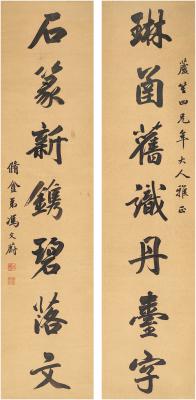 蘆笙四兄年大人雅正
琳圅舊識丹臺字
石篆新鐫碧落文
脩盦弟馮文蔚